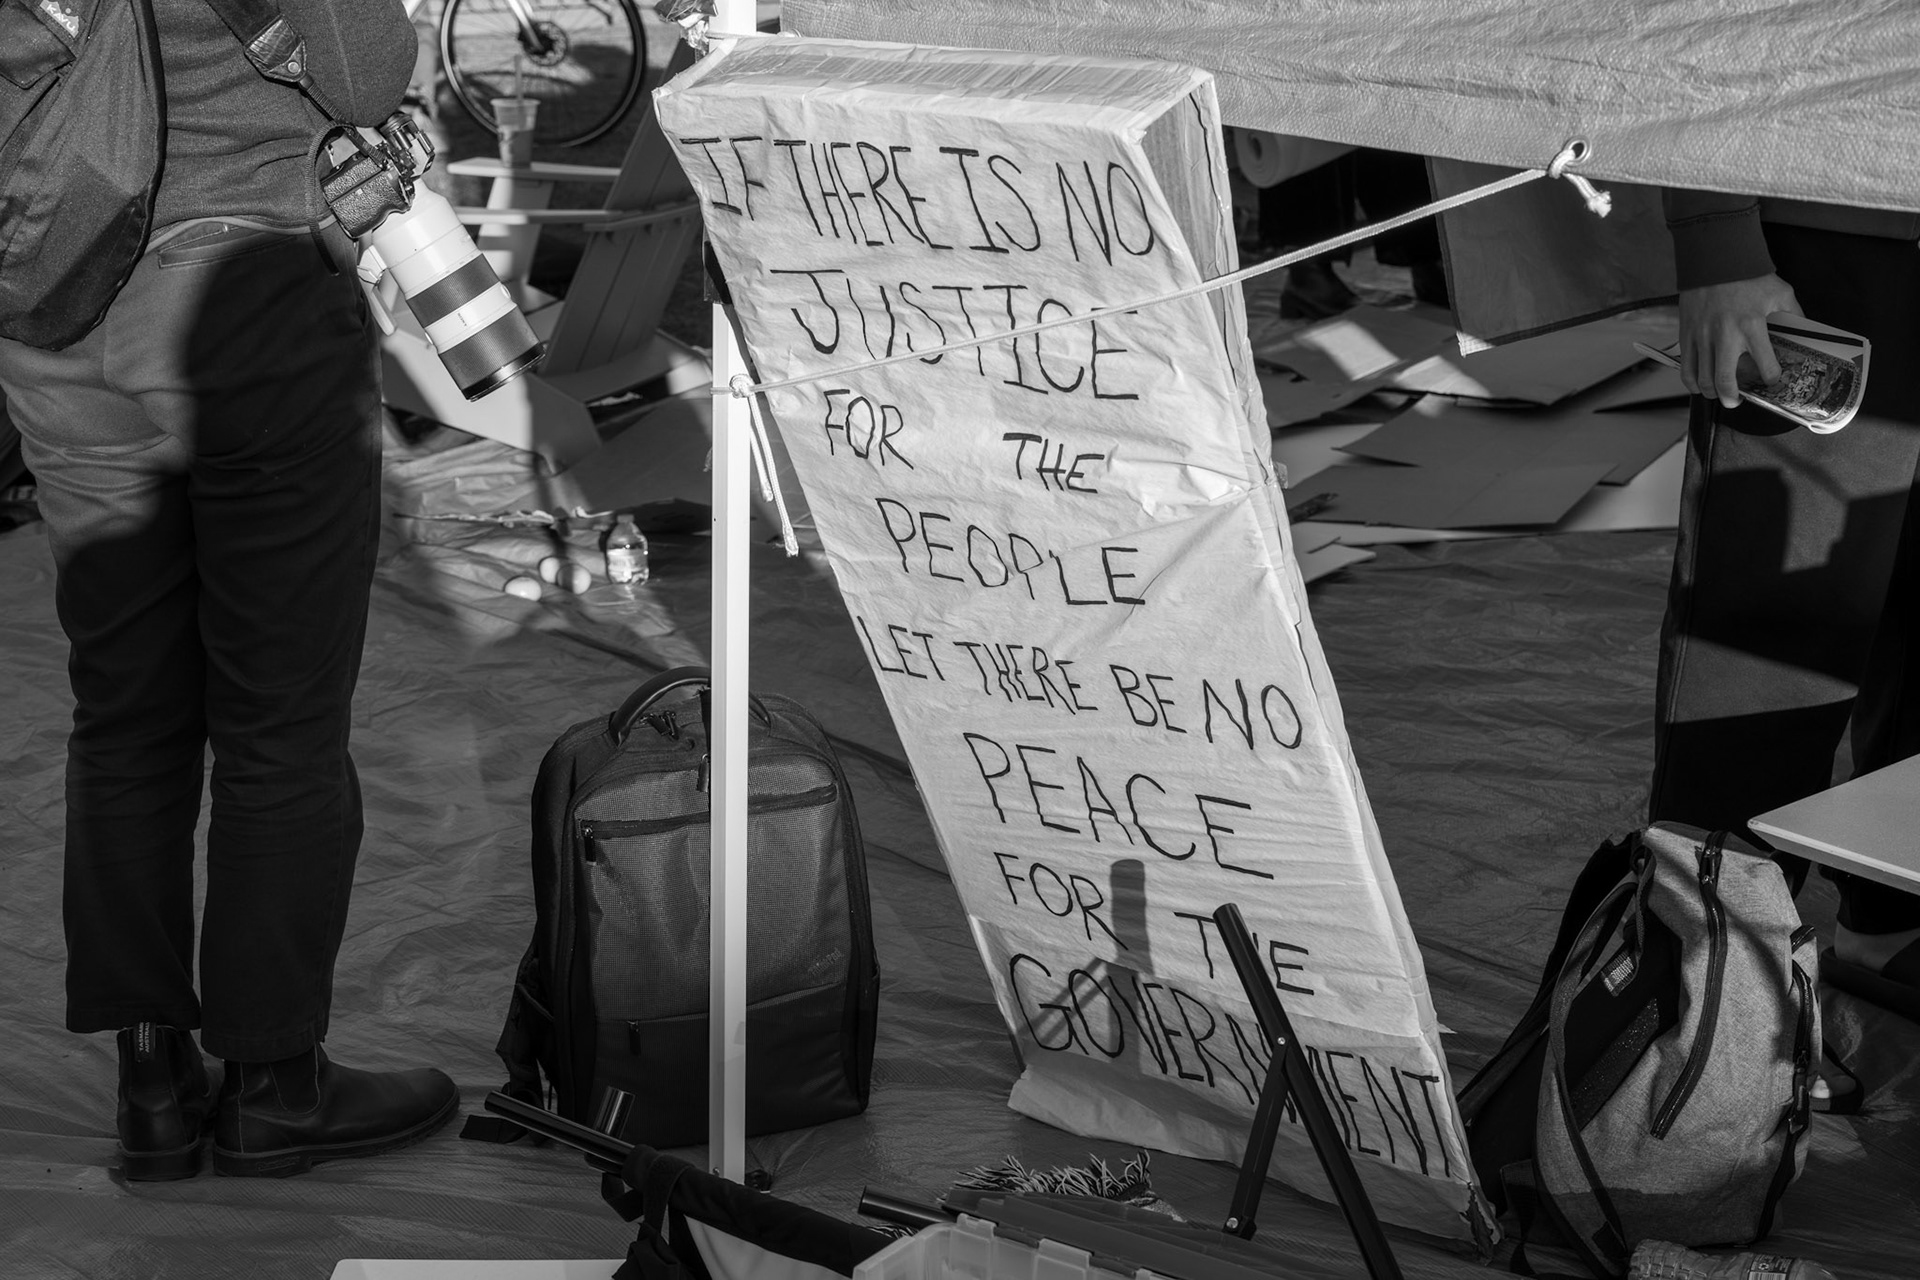 IF THERE IS NO
JUSTICE
FOR THE
PEOPLE
LET THERE BE NO
PEACE
FOR THE
GOVERNMENT
KAVU
TASMANIA
AUSTRALIA